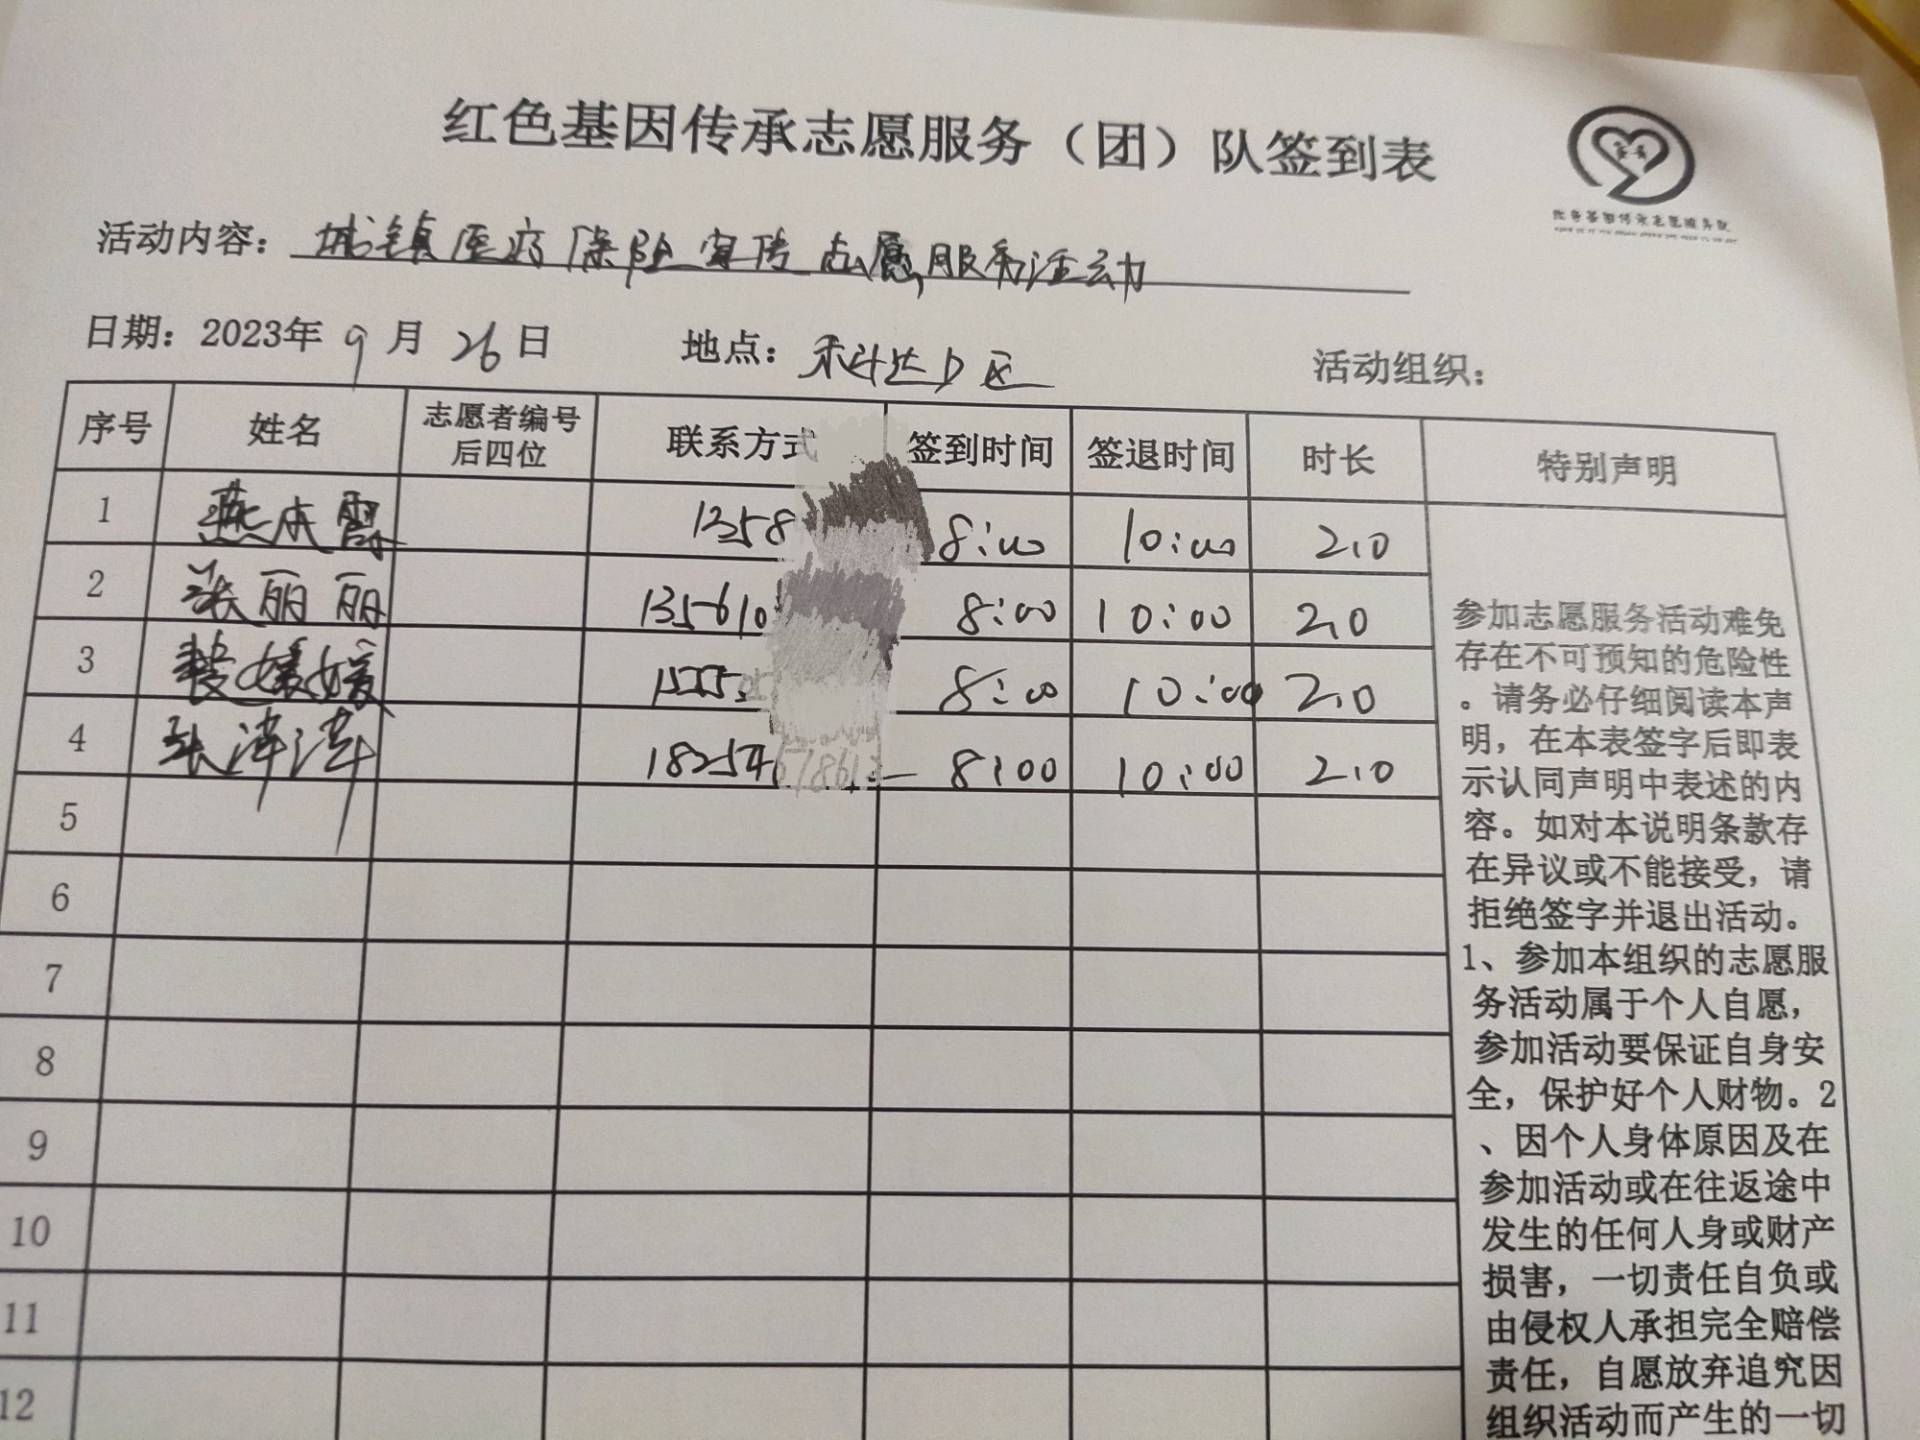 红色基因传承志愿服务（团）队签到表
活动内容：城镇医疗保险宣传志愿服务活动
日期：2023年9月26日 地点：禾科达小区 活动组织：
序号 姓名 志愿者编号后四位 联系方式 签到时间 签退时间 时长 特别声明
1 燕本霞 1358 8:00 10:00 2.0
2 张丽丽 135610 8:00 10:00 2.0
3 裴媛媛 8:00 10:00 2.0
4 张津津 18254 8:00 10:00 2.0
5
6
7
8
9
10
11
12
参加志愿服务活动难免
存在不可预知的危险性
。请务必仔细阅读本声
明，在本表签字后即表
示认同声明中表述的内
容。如对本说明条款存
在异议或不能接受，请
拒绝签字并退出活动。
1、参加本组织的志愿服
务活动属于个人自愿，
参加活动要保证自身安
全，保护好个人财物。2
、因个人身体原因及在
参加活动或在往返途中
发生的任何人身或财产
损害，一切责任自负或
由侵权人承担完全赔偿
责任，自愿放弃追究因
组织活动而产生的一切